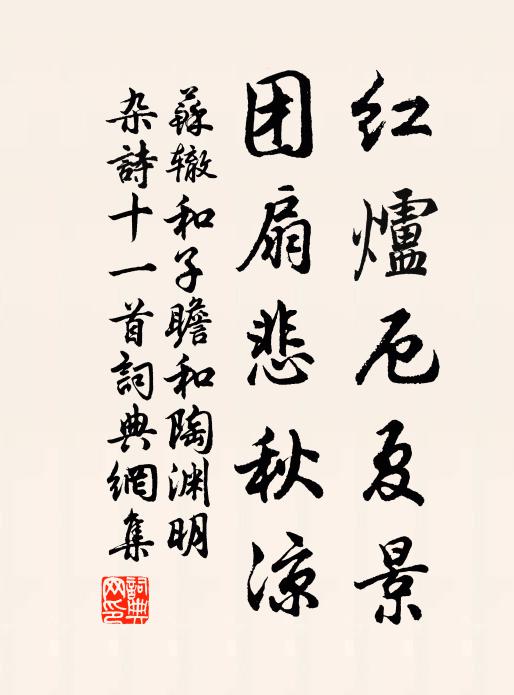 红爐厄夏景
团扇悲秋涼
蘇辙和子瞻和陶渊明
杂詩十一首詞典網集
詞典網印